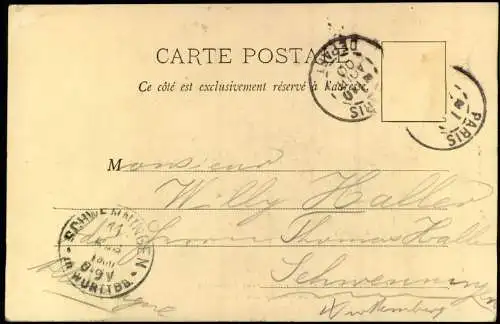 CARTE POSTA
Ce côté est exclusivement réservé à l'adresse
PARIS
DEPART
PARIS
Monsieur
Willy Haller
Thomas Haller
Schwenningen
Württemberg
SCHWENNINGEN
WÜRTTBG.